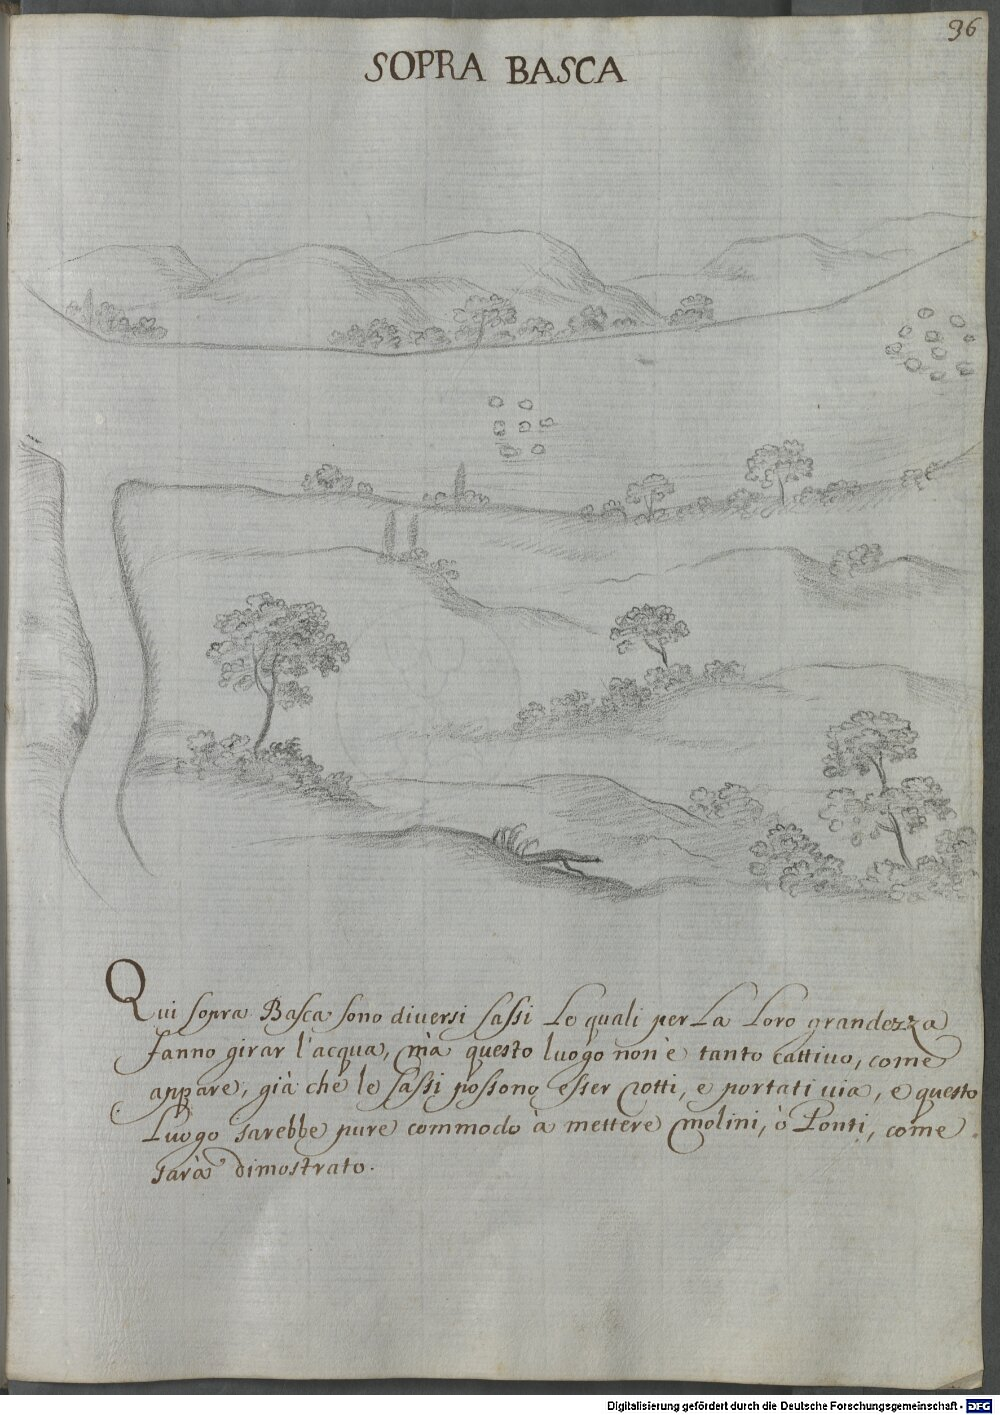 96
SOPRA BASCA
Qui sopra Basca sono diversi sassi Le quali per La Loro grandezza
fanno girar l'acqua, mà questo luogo non'è tanto cattiuo, come
appare, già che le sassi possono esser rotti, e portati uia, e questo
Luogo sarebbe pure commodo à mettere molini, ò Ponti, come
sarà dimostrato.
Digitalisierung gefördert durch die Deutsche Forschungsgemeinschaft - DFG